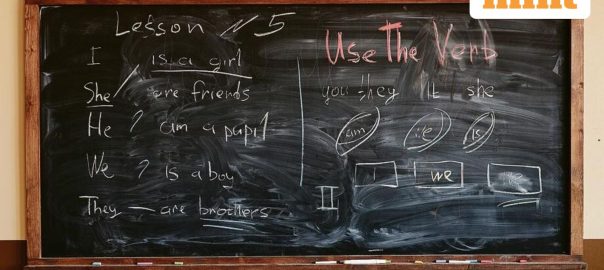 mint
Lesson N 5
I is a girl
She / are friends
He ? am a pupil
We ? is a boy
They — are brothers
Use The Verb
you they It she
am is
II I we he